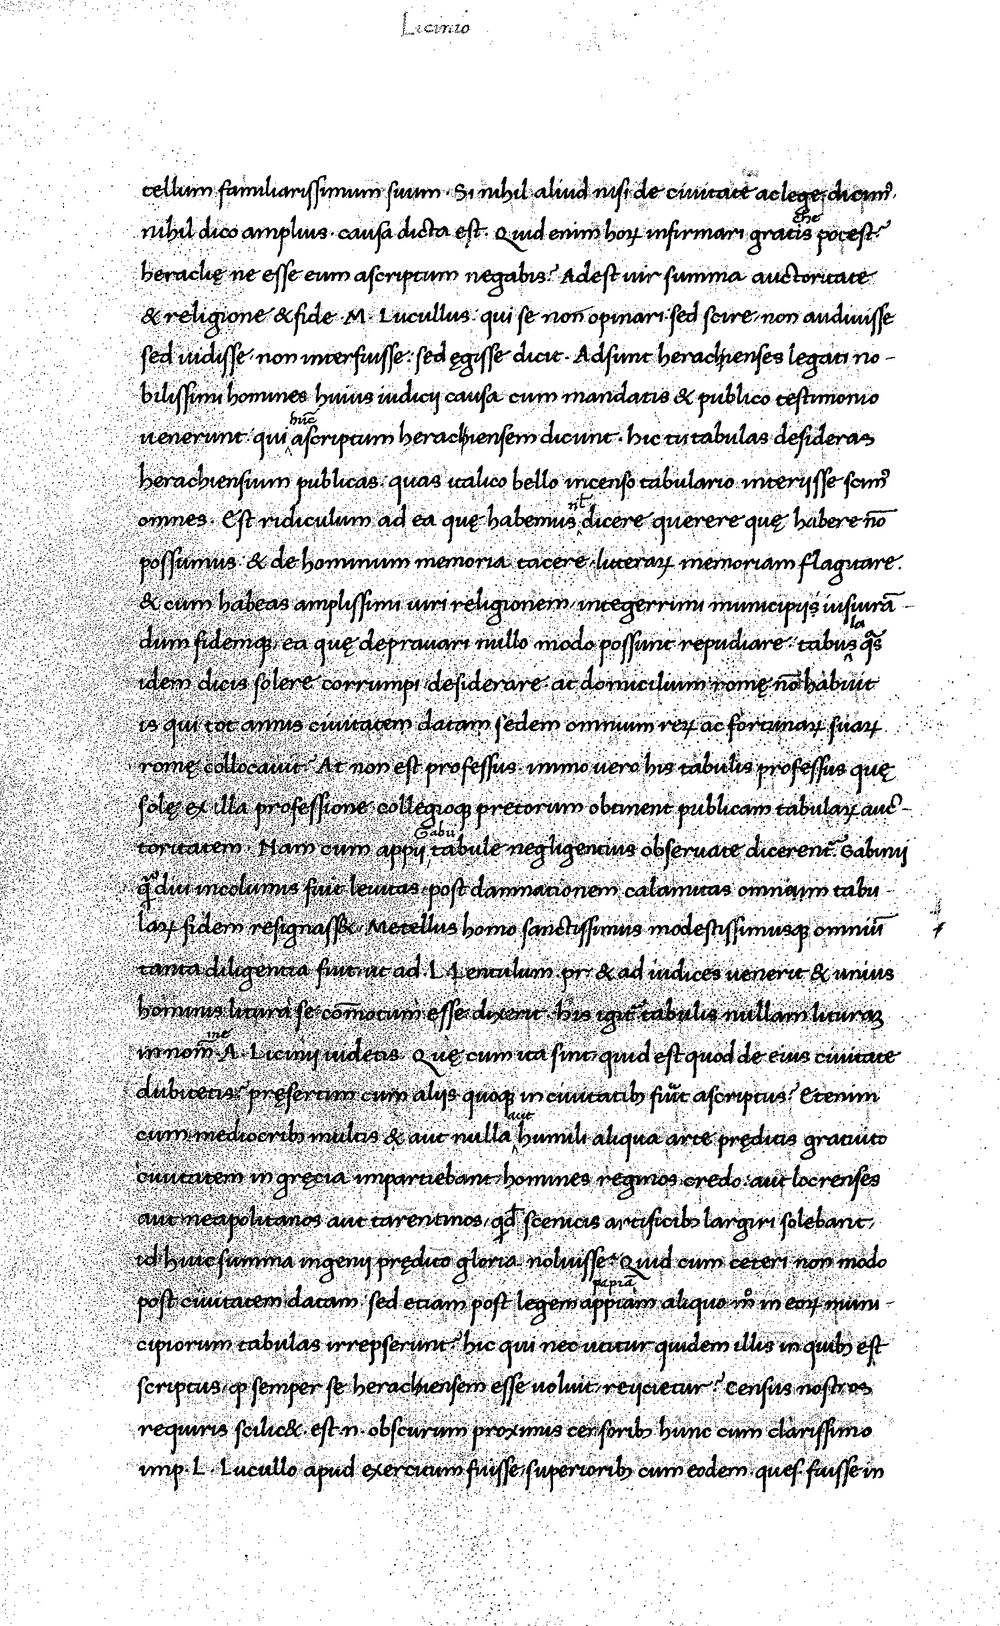 Licinio
tellum familiarissimum suum. Si nihil aliud nisi de ciuitate ac lege dicim᾽.
nihil dico amplius. causa dicta est. Quid enim hoꝝ infirmari gratis potest?
the
heraclię ne esse eum ascriptum negabis? Adest uir summa auctoritate
& religione & fide M. Lucullus. qui se non opinari sed scire. non audiuisse
sed uidisse. non interfuisse. sed ęgisse dicit. Adsunt heraclienses legati no-
bilissimi homines huius iudicij causa cum mandatis & publico testimonio
huc̄
uenerunt. qui ascriptum heracliensem dicunt. hic tu tabulas desideras
heracliensium publicas. quas italico bello incenso tabulario interijsse scim᾽
omnes. Est ridiculum ad ea quę habemus dicere querere quę habere nō
nt̄
possumus. & de hominum memoria tacere. litteraꝝ memoriam flagitare.
& cum habeas amplissimi uiri religionem. integerrimi municipijs iusiurā-
dum fidemqꝫ. ea quę deprauari nullo modo possunt repudiare. tabus q̄s
la
idem dicis solere corrumpi desiderare. at domicilium romę nō habuit
is qui tot annis ciuitatem datam sedem omnium reꝝ ac fortunaꝝ suaꝝ
romę collocauit? At non est professus. immo uero his tabulis professus quę
solę ex illa professione collegioqꝫ pretorum obtinent publicam tabulaꝝ auc-
toritatem. Nam cum appij tabule negligentius obseruate dicerent̄. Gabinij
Gabij
q̄diu incolumis fuit leuitas. post damnationem calamitas omnium tabu-
laꝝ fidem resignass&. Metellus homo sanctissimus modestissimusqꝫ omniū
tanta diligentia fuit. ut ad .L. Lentulum pr̄. & ad iudices uenerit & unius
hominis litura se com̄otum esse dixerit. his igit̄ tabulis nullam lituram
in nom̄ A. Licinij uidetis. Quę cum ita sint. quid est quod de eius ciuitate
ine
dubitetis? pręsertim cum alijs quoqꝫ in ciuitatibꝫ fūit ascriptus? Etenim
cum mediocribꝫ multis & aut nulla humili aliqua arte pręditis gratuito
aut
ciuitatem in gręcia impartiebant. homines reginos credo. aut locrenses
aut neapolitanos aut tarentinos. qd̄ scenicis artificibꝫ largiri solebant,
id huic summa ingenij prędito gloria noluisse? Quid cum ceteri non modo
post ciuitatem datam sed etiam post legem appiam aliquo m̊ in eoꝝ muni-
papiā
cipiorum tabulas irrepserunt? hic qui nec utitur quidem illis in quibꝫ est
scriptus. ꝙ semper se heracliensem esse uoluit. reijcietur? Census nostros
requiris scilic&. est .n. obscurum proximis censoribꝫ hunc cum clarissimo
imp. L. Lucullo apud exercitum fuisse. superioribꝫ cum eodem ques. fuisse in